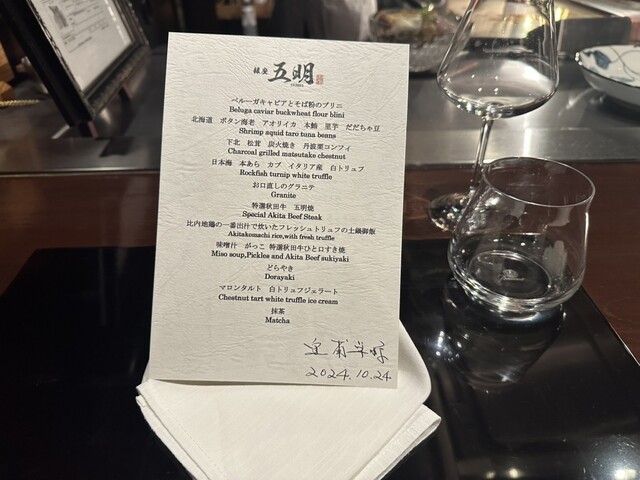 銀座 五明
ベルーガキャビアとそば粉のブリニ
Beluga caviar buckwheat flour blini
北海道 ボタン海老 アオリイカ 本鮪 里芋 だだちゃ豆
Shrimp squid taro tuna beans
下北 松茸 炭火焼き 丹波栗コンフィ
Charcoal grilled matsutake chestnut
日本海 本あら カブ イタリア産 白トリュフ
Rockfish turnip white truffle
お口直しのグラニテ
Granite
特選秋田牛 五明焼
Special Akita Beef Steak
比内地鶏の一番出汁で炊いたフレッシュトリュフの土鍋御飯
Akitakomachi rice,with fresh truffle
味噌汁 がっこ 特選秋田牛ひと口すき焼
Miso soup,Pickles and Akita Beef sukiyaki
どらやき
Dorayaki
マロンタルト 白トリュフジェラート
Chestnut tart white truffle ice cream
抹茶
Matcha
2024.10.24